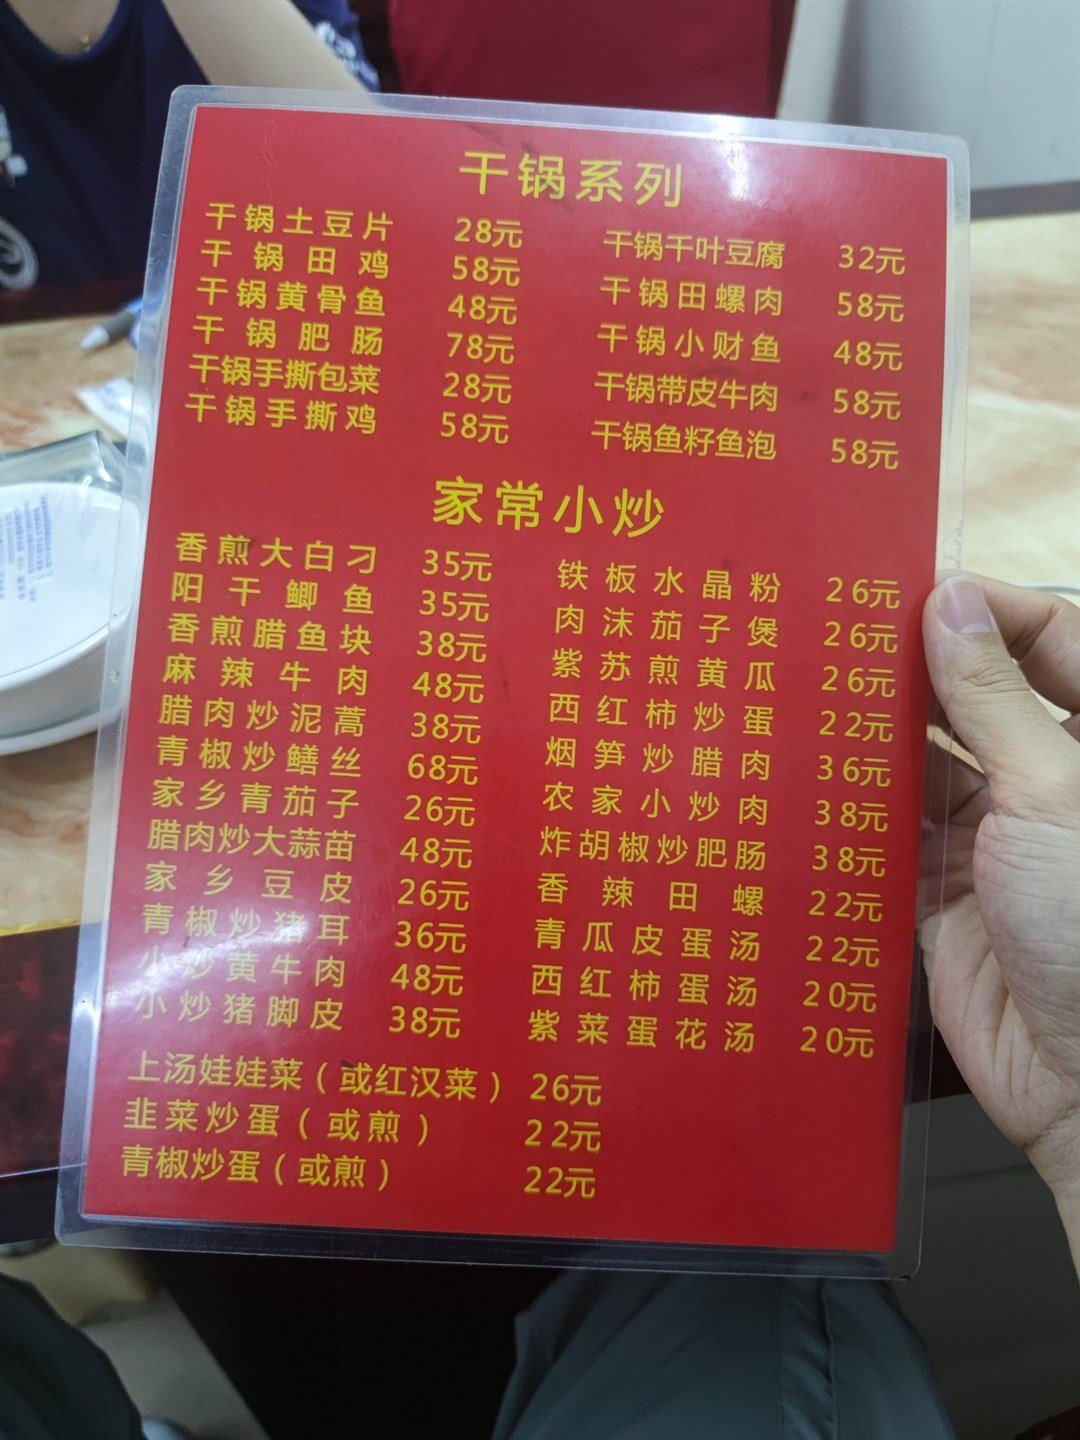 干锅系列
干锅土豆片 28元
干锅田鸡 58元
干锅黄骨鱼 48元
干锅肥肠 78元
干锅手撕包菜 28元
干锅手撕鸡 58元
干锅千叶豆腐 32元
干锅田螺肉 58元
干锅小财鱼 48元
干锅带皮牛肉 58元
干锅鱼籽鱼泡 58元
家常小炒
香煎大白刁 35元
阳干鲫鱼 35元
香煎腊鱼块 38元
麻辣牛肉 48元
腊肉炒泥蒿 38元
青椒炒鳝丝 68元
家乡青茄子 26元
腊肉炒大蒜苗 48元
家乡豆皮 26元
青椒炒猪耳 36元
小炒黄牛肉 48元
小炒猪脚皮 38元
铁板水晶粉 26元
肉沫茄子煲 26元
紫苏煎黄瓜 26元
西红柿炒蛋 22元
烟笋炒腊肉 36元
农家小炒肉 38元
炸胡椒炒肥肠 38元
香辣田螺 22元
青瓜皮蛋汤 22元
西红柿蛋汤 20元
紫菜蛋花汤 20元
上汤娃娃菜（或红汉菜） 26元
韭菜炒蛋（或煎） 22元
青椒炒蛋（或煎） 22元